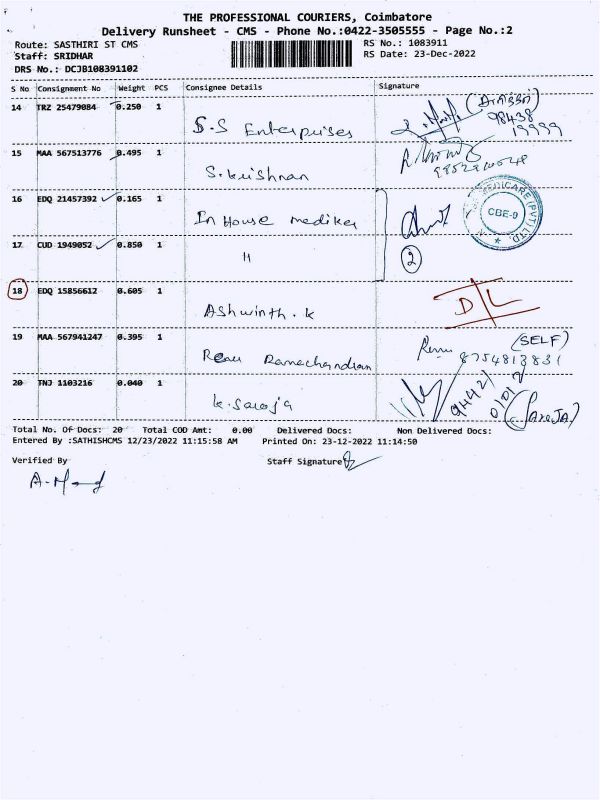 THE PROFESSIONAL COURIERS, Coimbatore
Delivery Runsheet - CMS - Phone No.:0422-3505555 - Page No.:2
Route: SASTHIRI ST CMS RS No.: 1083911
Staff: SRIDHAR RS Date: 23-Dec-2022
DRS No.: DCJB108391102
S No Consignment No Weight PCS Consignee Details Signature
14 TRZ 25479084 0.250 1 S.S Enterprises 98438 19999
15 MAA 567513776 0.495 1 S.krishnan
16 EDQ 21457392 0.165 1 In House medikel MEDICARE (PVT) LTD. CBE-9
17 CUD 1949052 0.850 1 11 2
18 EDQ 15856612 0.605 1 Ashwinth.k D/L
19 MAA 567941247 0.395 1 Renu Ramachandran Renu (SELF) 8754813831
20 TNJ 1103216 0.040 1 k.Saroja (SAROJA)
Total No. Of Docs: 20 Total COD Amt: 0.00 Delivered Docs: Non Delivered Docs:
Entered By :SATHISHCMS 12/23/2022 11:15:58 AM Printed On: 23-12-2022 11:14:50
Verified By Staff Signature